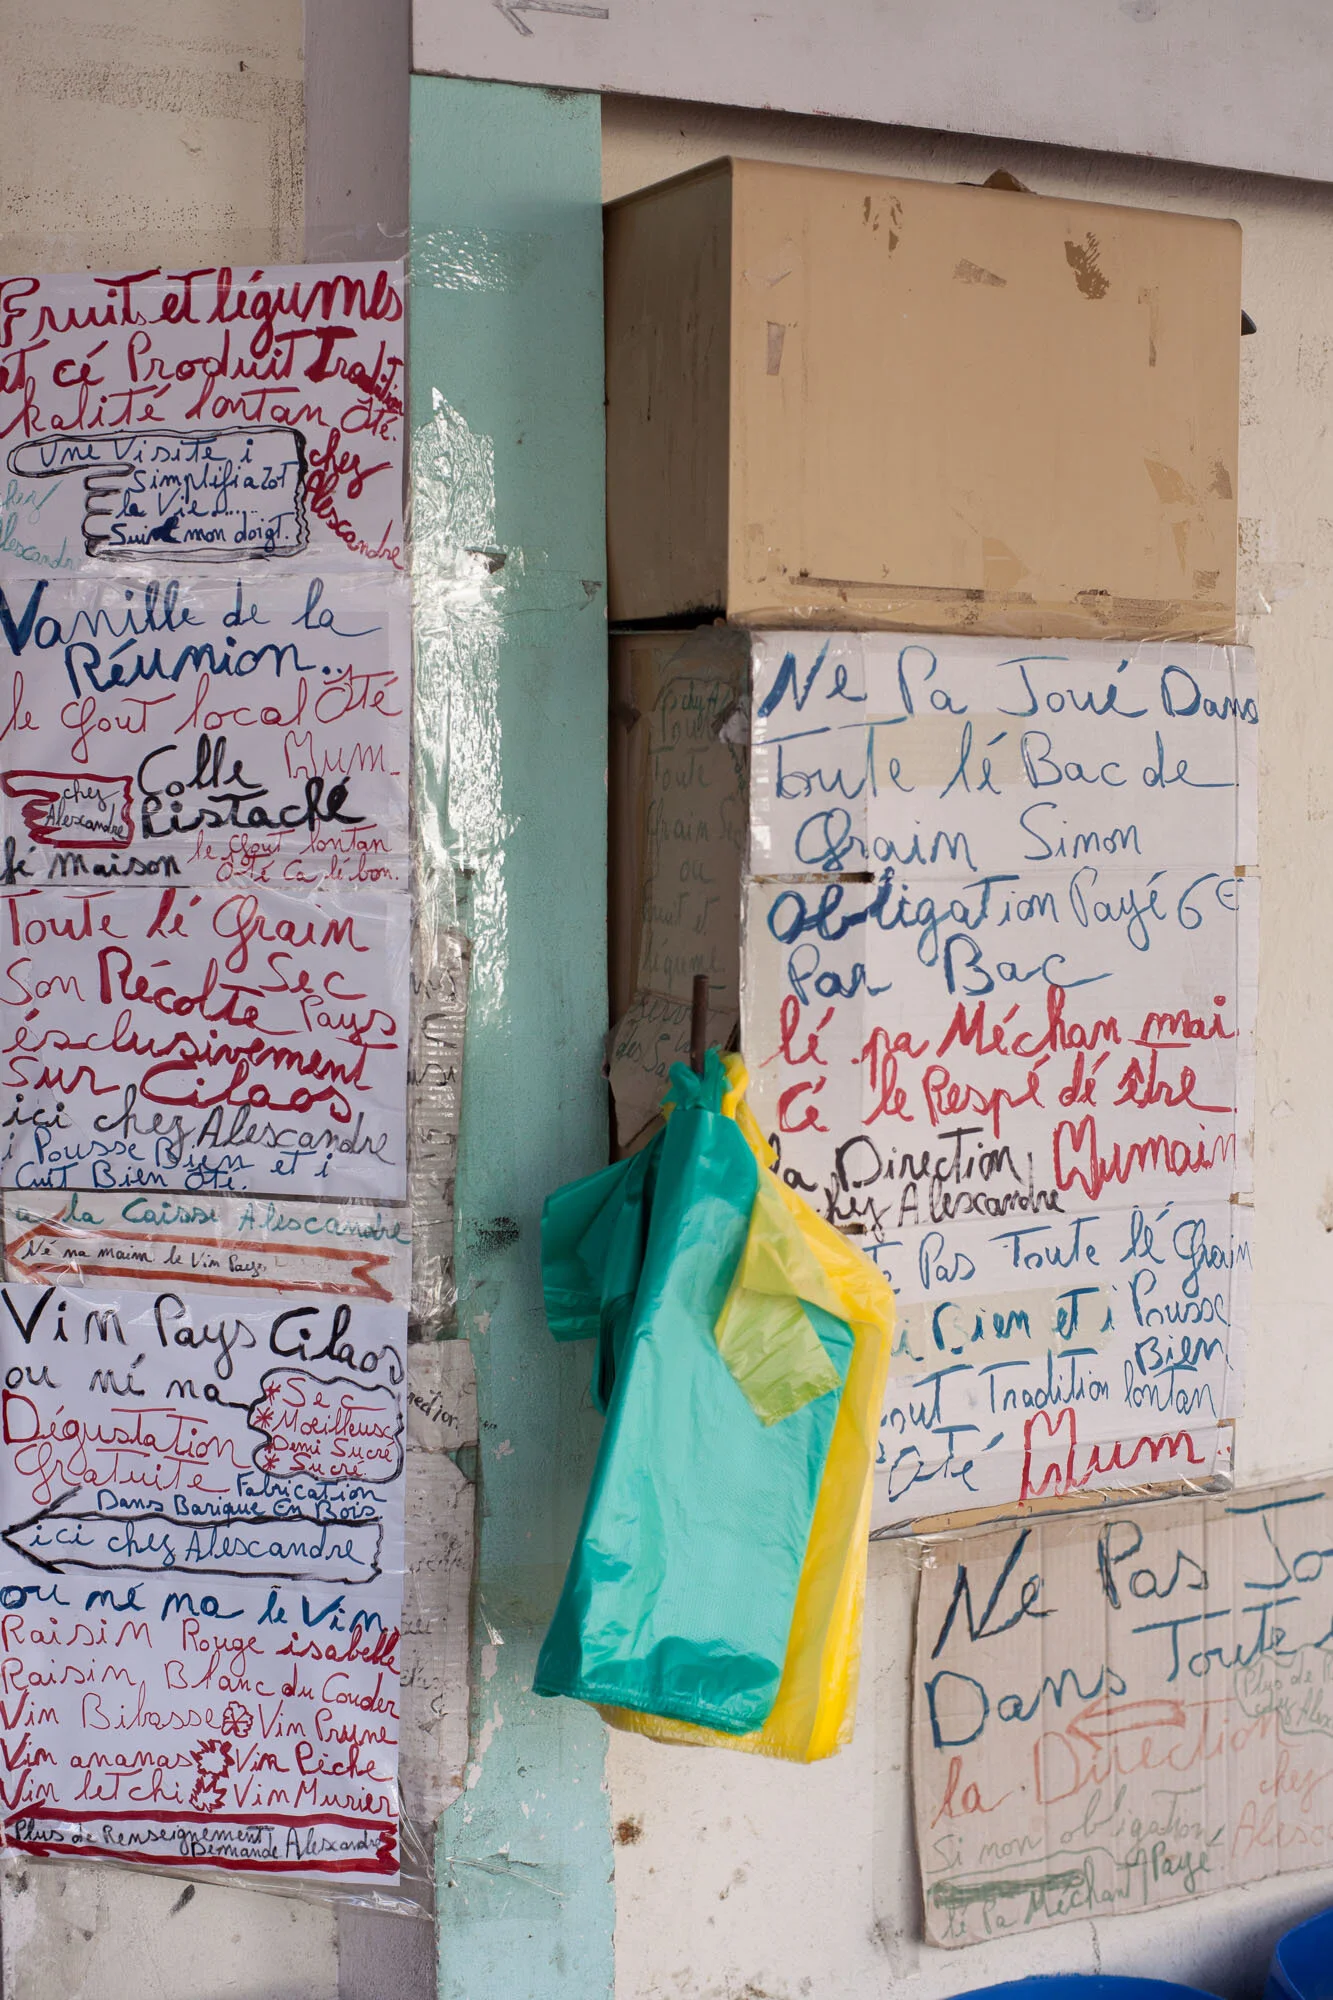 Fruit et légumes
et cé Produit Tradition
kalité lontan Oté.
Une Visite i
Simplifia zot
la Vie......
Suive mon doigt.
chez
Alescandre
chez
Alescandre
Vanille de la
Réunion...
le Gout local Oté
Mum_
Colle
Pistache
chez
Alescandre
fé maison
le Gout lontan
Oté Ca lé bon.
Toute lé Grain
Son Récolte Sec
Pays
ésclusivement
Sur Cilaos
ici chez Alescandre
i Pousse Bien et i
Cuit Bien Oté.
a la Caisse Alescandre
Né na maim le Vin Pays
Vin Pays Cilaos
ou né na
* Sec
* Moeilleusc
* Demi Sucré
* Sucré
Dégustation
Gratuite
Fabrication
Dans Barique En Bois.
ici chez Alescandre
ou né na le Vin
Raisin Rouge isabelle
Raisin Blanc du Couder
Vin Bibasse Vin Prune
Vin ananas Vin Pèche
Vin letchi Vin Murier
Plus de Renseignement
Demande Alescandre
Toute
Grain Sec
ou
fruit et
légume
Ne Pa Joué Dans
Toute lé Bac de
Grain Simon
Obligation Payé 6€
Par Bac
lé pa Méchan mai
Cé le Respé dé être
Humain
la Direction
chez Alescandre
Pas Toute lé Grain
Bien et i Pousse
Bien
out Tradition lontan
Oté Mum..
Ne Pas Jo
Dans Toute
la Direction
chez
Si non obligation
A Payé
lé Pa Méchant